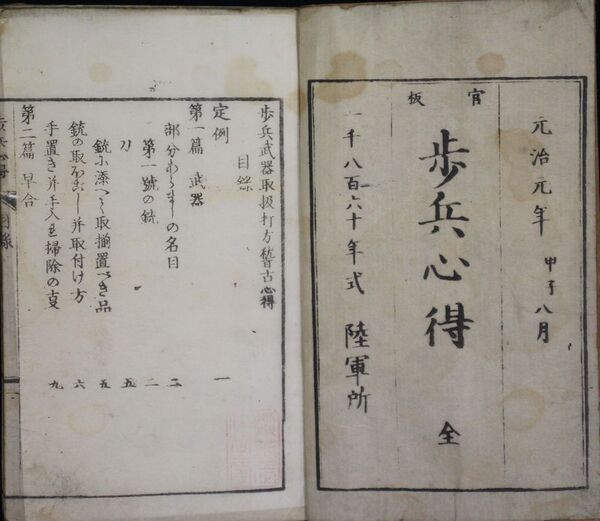 官板
元治元年 甲子八月
歩兵心得 全
一千八百六十年式 陸軍所
歩兵武器取扱打方稽古心得
目録
定例 一
第一篇 武器
部分あらましの名目 二
第一號の銃 二
刀 五
銃に添べく取揃置べき品 五
銃の取ほごし并取付け方 六
手置き并手入れ掃除の事 九
第二篇 早合
歩兵心得 目録